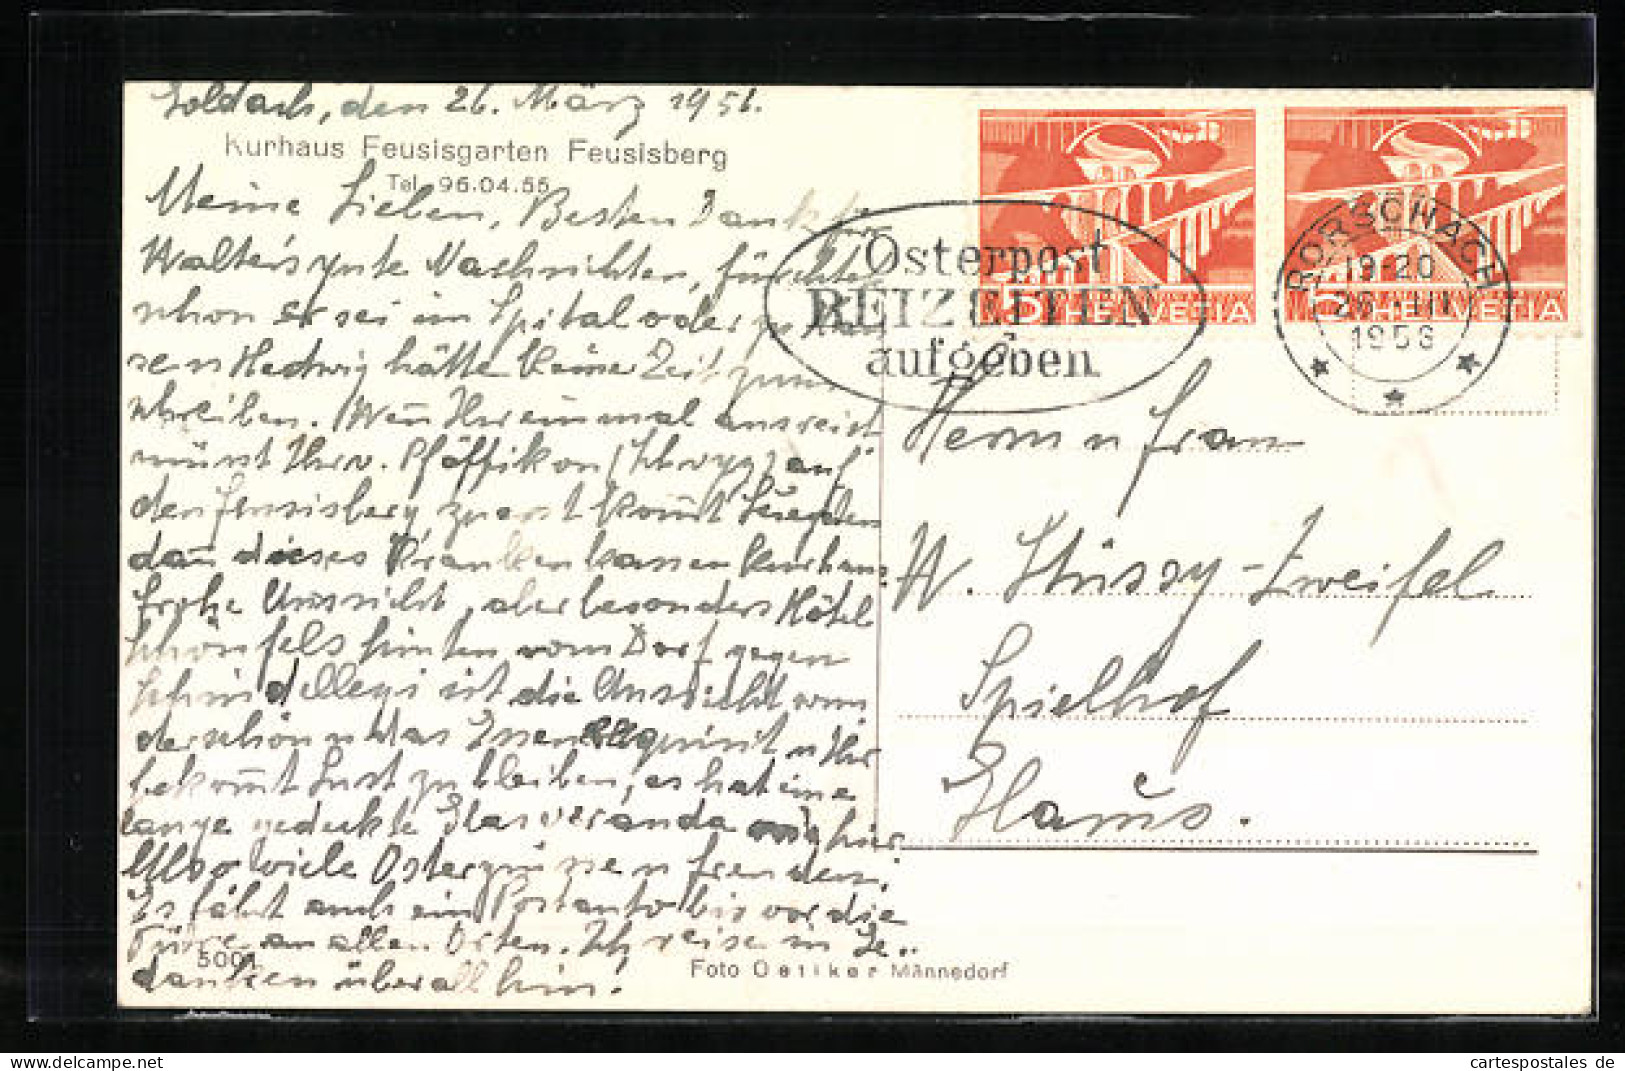 Goldach, den 26. März 1951.
Kurhaus Feusisgarten Feusisberg
Tel. 96.04.55
Meine Lieben, Besten Dank für
Walter's gute Nachrichten, fürchtete
schon er sei im Spital oder
sen Hedwig hätte keine Zeit zum
schreiben. Wen̄ Ihr einmal ausreist
müsst Ihr v. Pfäffikon (Schwyz) auf
den Feusisberg, zuerst kom̄t
dan̄ dieses Krankenkassen Kurhaus
frohe Aussicht, aber besonders Hôtel
Schönfels hinten vom Dorf gegen
Schindellegi ist die Aussicht wun
derschön u das Essen u Ihr
bekom̄t Lust zu bleiben, es hat eine
lange gedeckte Glasveranda hier.
Also viele Ostergrüsse u freuden.
Es fährt auch ein Postauto bis vor die
Türe an allen Orten. Ich reise in Ge..
danken überall hin!
5001
Foto Oetiker Männedorf
Osterpost
BEIZEITEN
aufgeben
5 HELVETIA
5 HELVETIA
RORSCHACH
19-20
26. III
1956
Herrn u Frau
W. Stüssy-Zweifel
Spielhof
Glarus.
cartespostales de